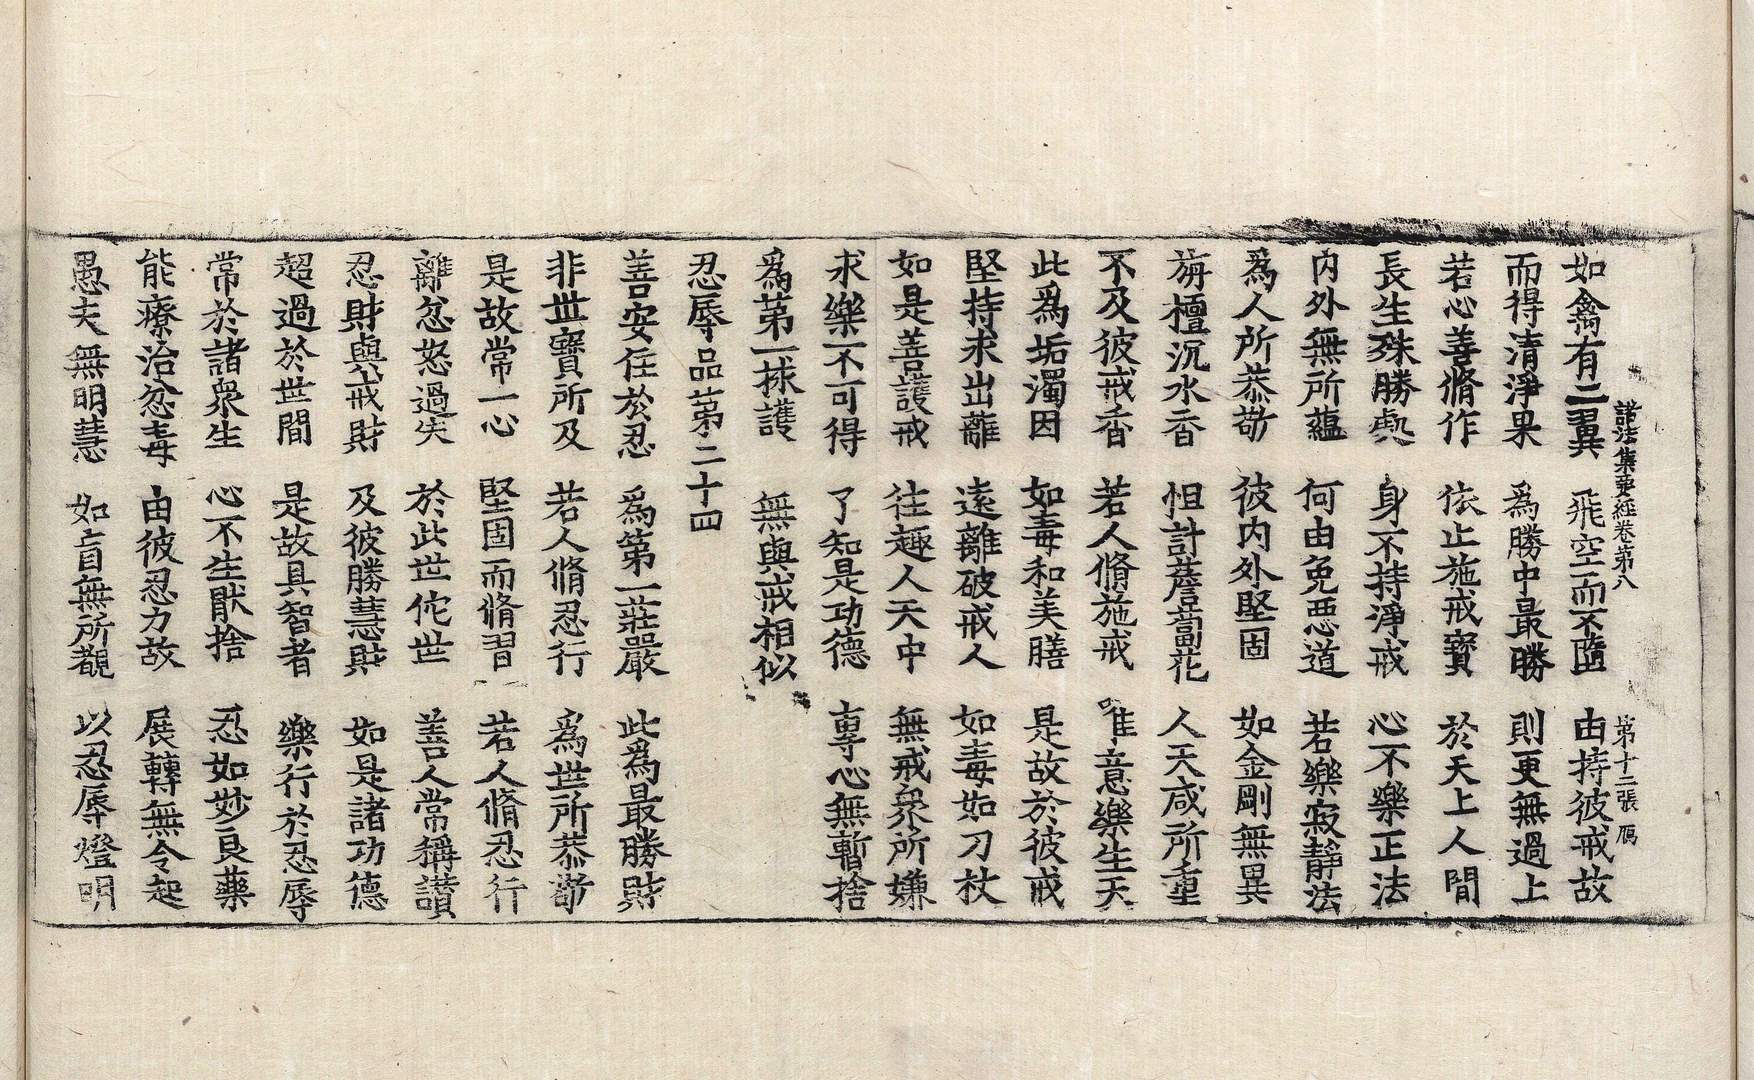 諸法集要經卷第八 第十二張 鴈
如禽有二翼 飛空而不墮 由持彼戒故
而得清淨果 為勝中最勝 則更無過上
若心善脩作 依止施戒寶 於天上人間
長生殊勝處 身不持淨戒 心不樂正法
內外無所蘊 何由免惡道 若樂寂靜法
爲人所恭敬 彼內外堅固 如金剛無異
旃檀沉水香 怛計薝蔔花 人天咸所重
不及彼戒香 若人脩施戒 唯意樂生天
此爲垢濁因 如毒和美膳 是故於彼戒
堅持求出離 遠離破戒人 如毒如刀杖
如是善護戒 往趣人天中 無戒衆所嫌
求樂不可得 了知是功德 專心無暫捨
爲第一捄護 無與戒相似
忍辱品第二十四
善安住於忍 爲第一莊嚴 此爲最勝財
非世寶所及 若人脩忍行 爲世所恭敬
是故常一心 堅固而脩習 若人脩忍行
離忿怒過失 於此世佗世 善人常稱讚
忍財與戒財 及彼勝慧財 如是諸功德
超過於世間 是故具智者 樂行於忍辱
常於諸衆生 心不生猒捨 忍如妙良藥
能療治忿毒 由彼忍力故 展轉無令起
愚夫無明慧 如盲無所覩 以忍辱燈明